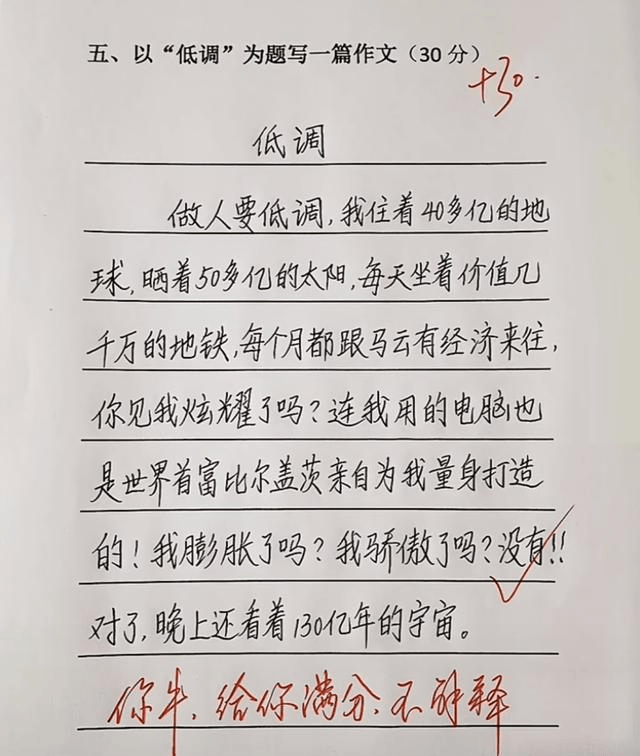 五、以“低调”为题写一篇作文（30分）
+30.
低调
做人要低调,我住着40多亿的地
球,晒着50多亿的太阳,每天坐着价值几
千万的地铁,每个月都跟马云有经济来往,
你见我炫耀了吗?连我用的电脑也
是世界首富比尔盖茨亲自为我量身打造
的!我膨胀了吗?我骄傲了吗?没有!!
对了,晚上还看着130亿年的宇宙。
你牛,给你满分,不解释